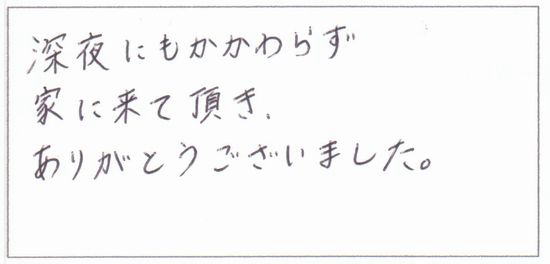 深夜にもかかわらず
家に来て頂き、
ありがとうございました。